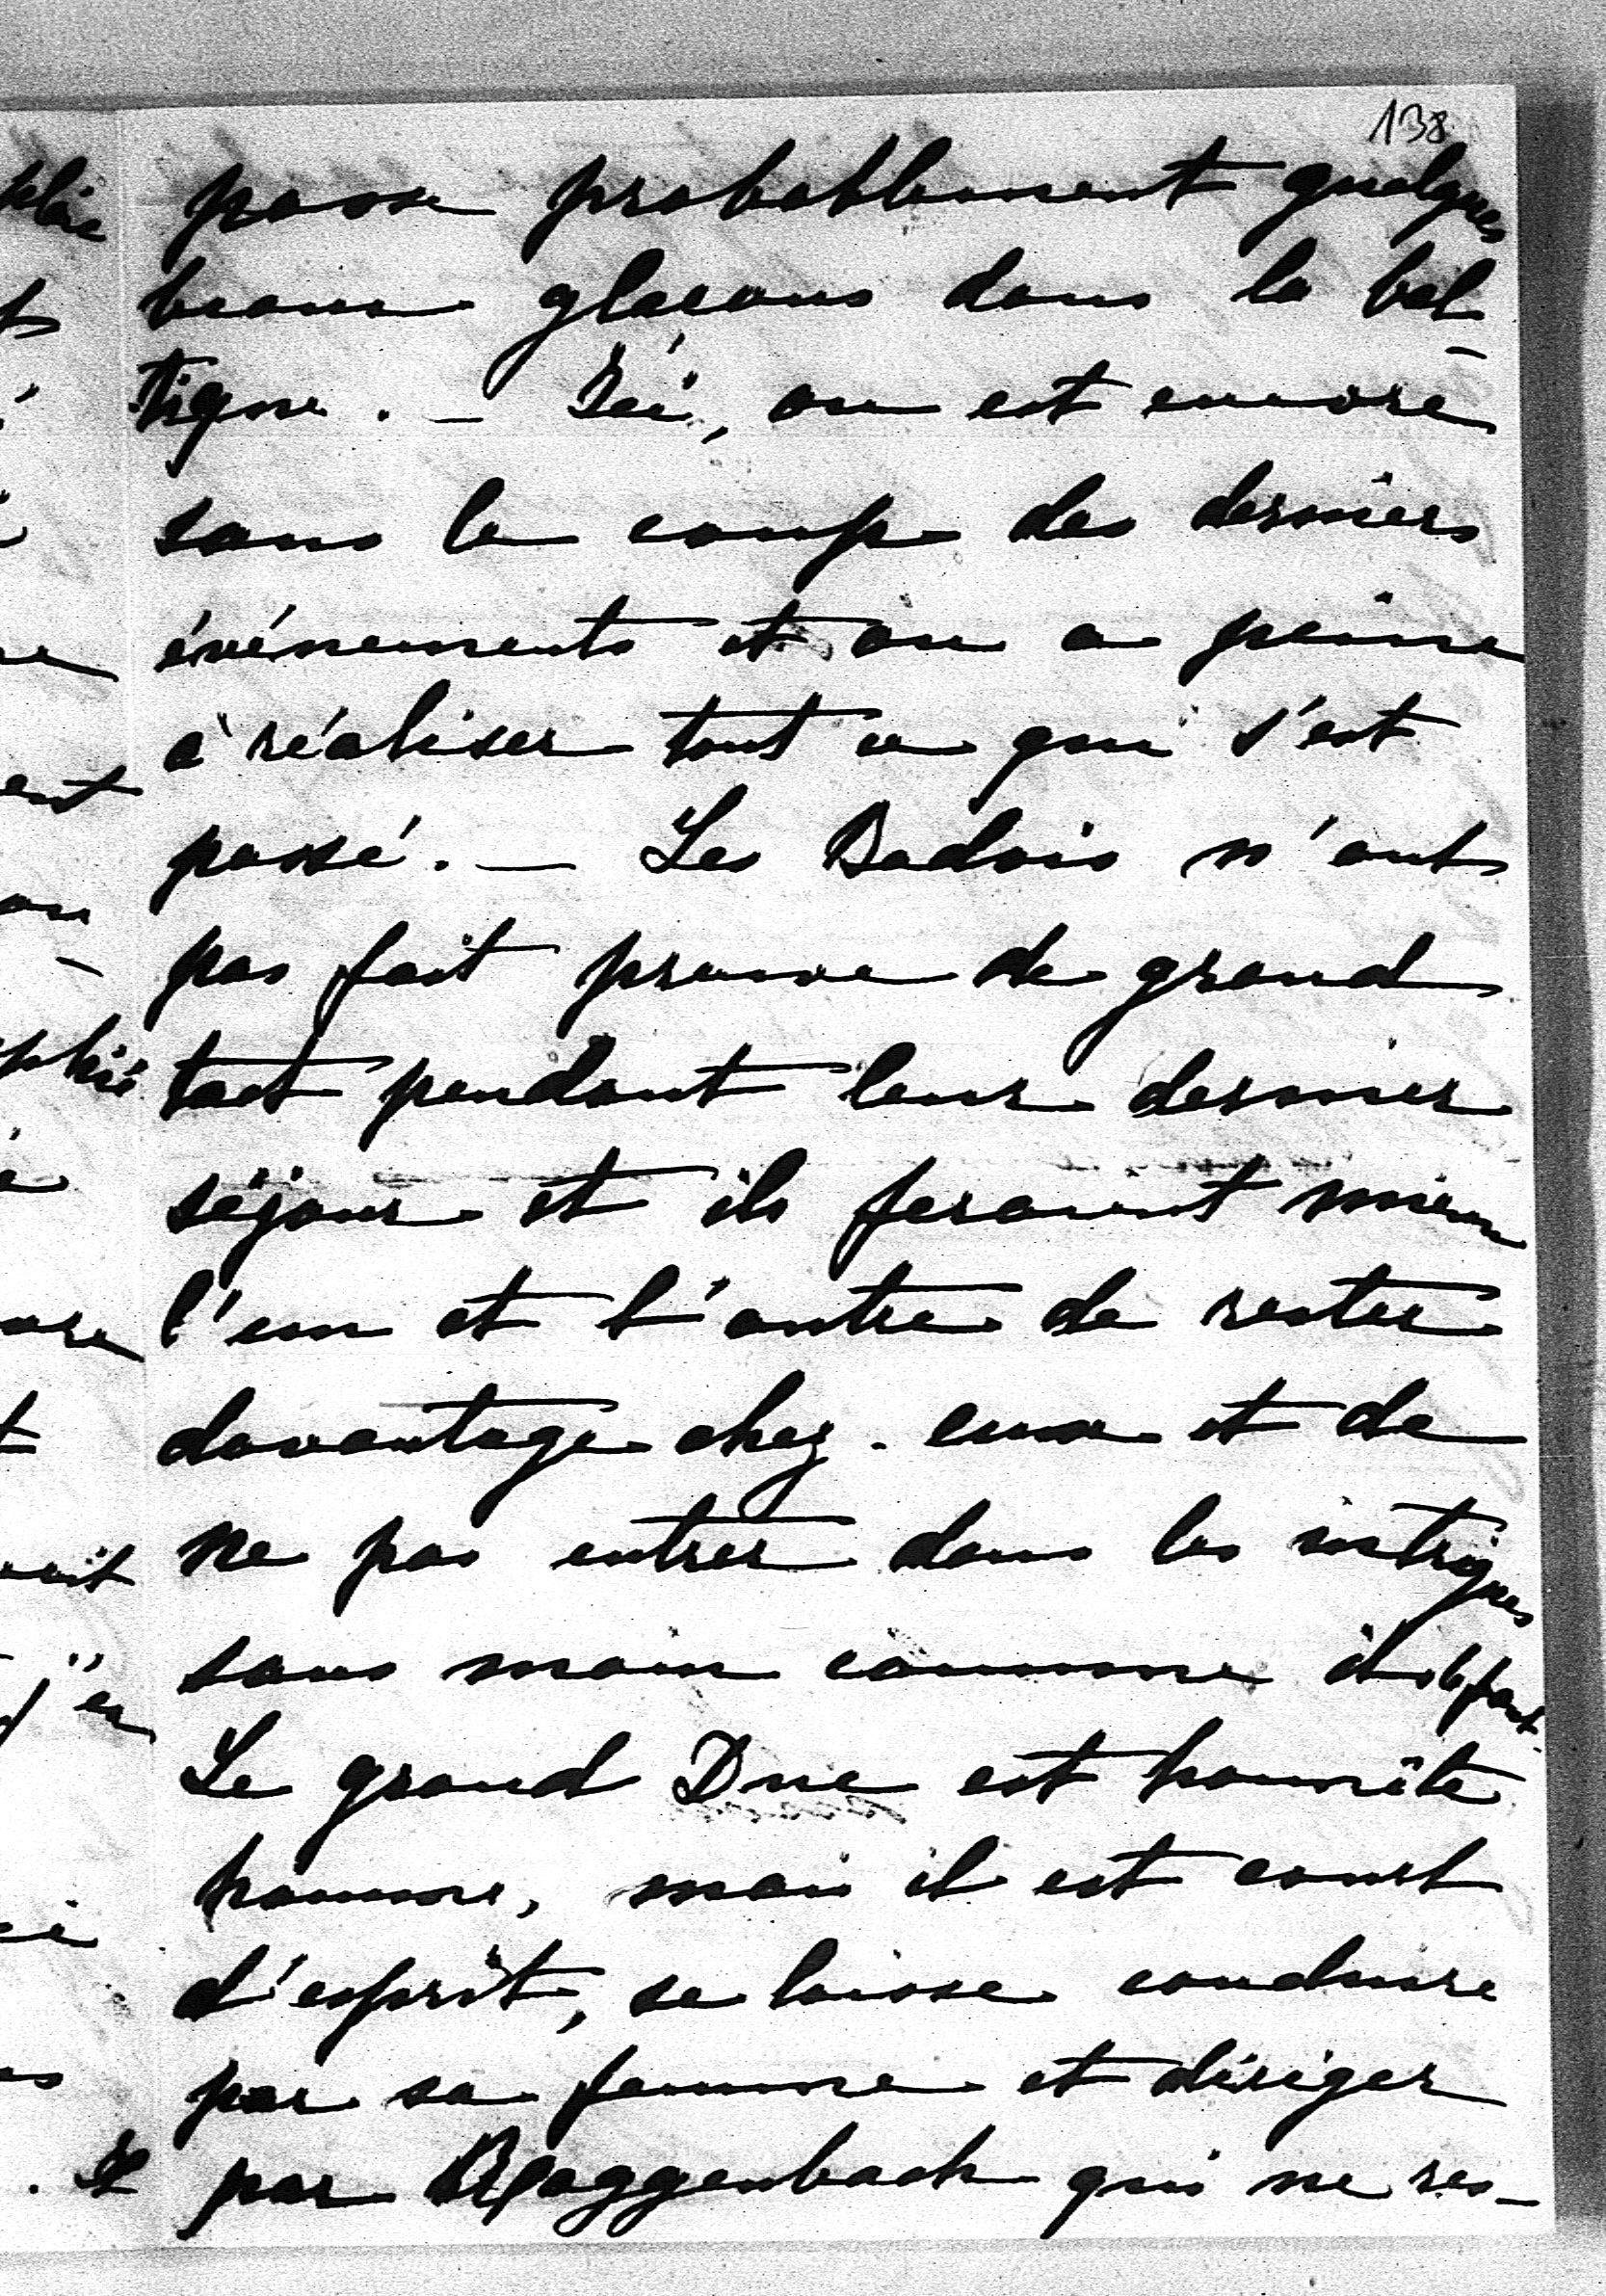 138
passe probablement quelques
beaux glacons dans la bal-
tique. - Ici, on est encore
sous le coup des derniers
événements et on a peine
à réaliser tout ce qui s'est
passé. - Les Badois n'ont
pas fait preuve de grand
tact pendant leur dernier
séjour et ils feraient mieux
l'un et l'autre de rester
davantage chez eux et de
ne pas entrer dans les intrigues
sous main comme ils le font.
Le grand Duc est honnête
homme, mais il est court
d'esprit, se laisse conduire
par sa femme et diriger
par Roggenbach qui ne res-